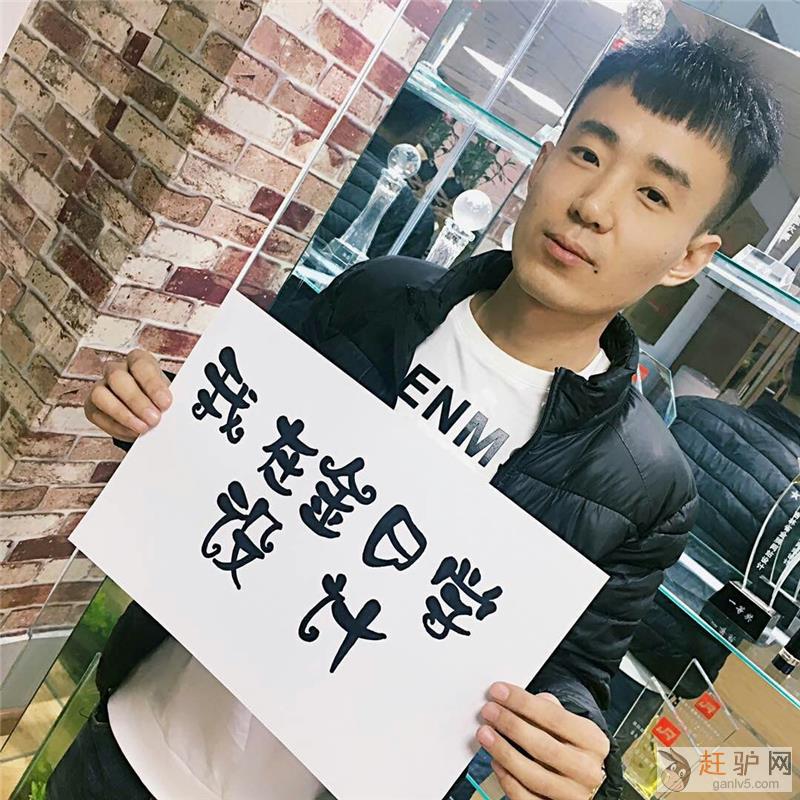 我在金日游
设计
ENM
赶驴网
ganlv5.com